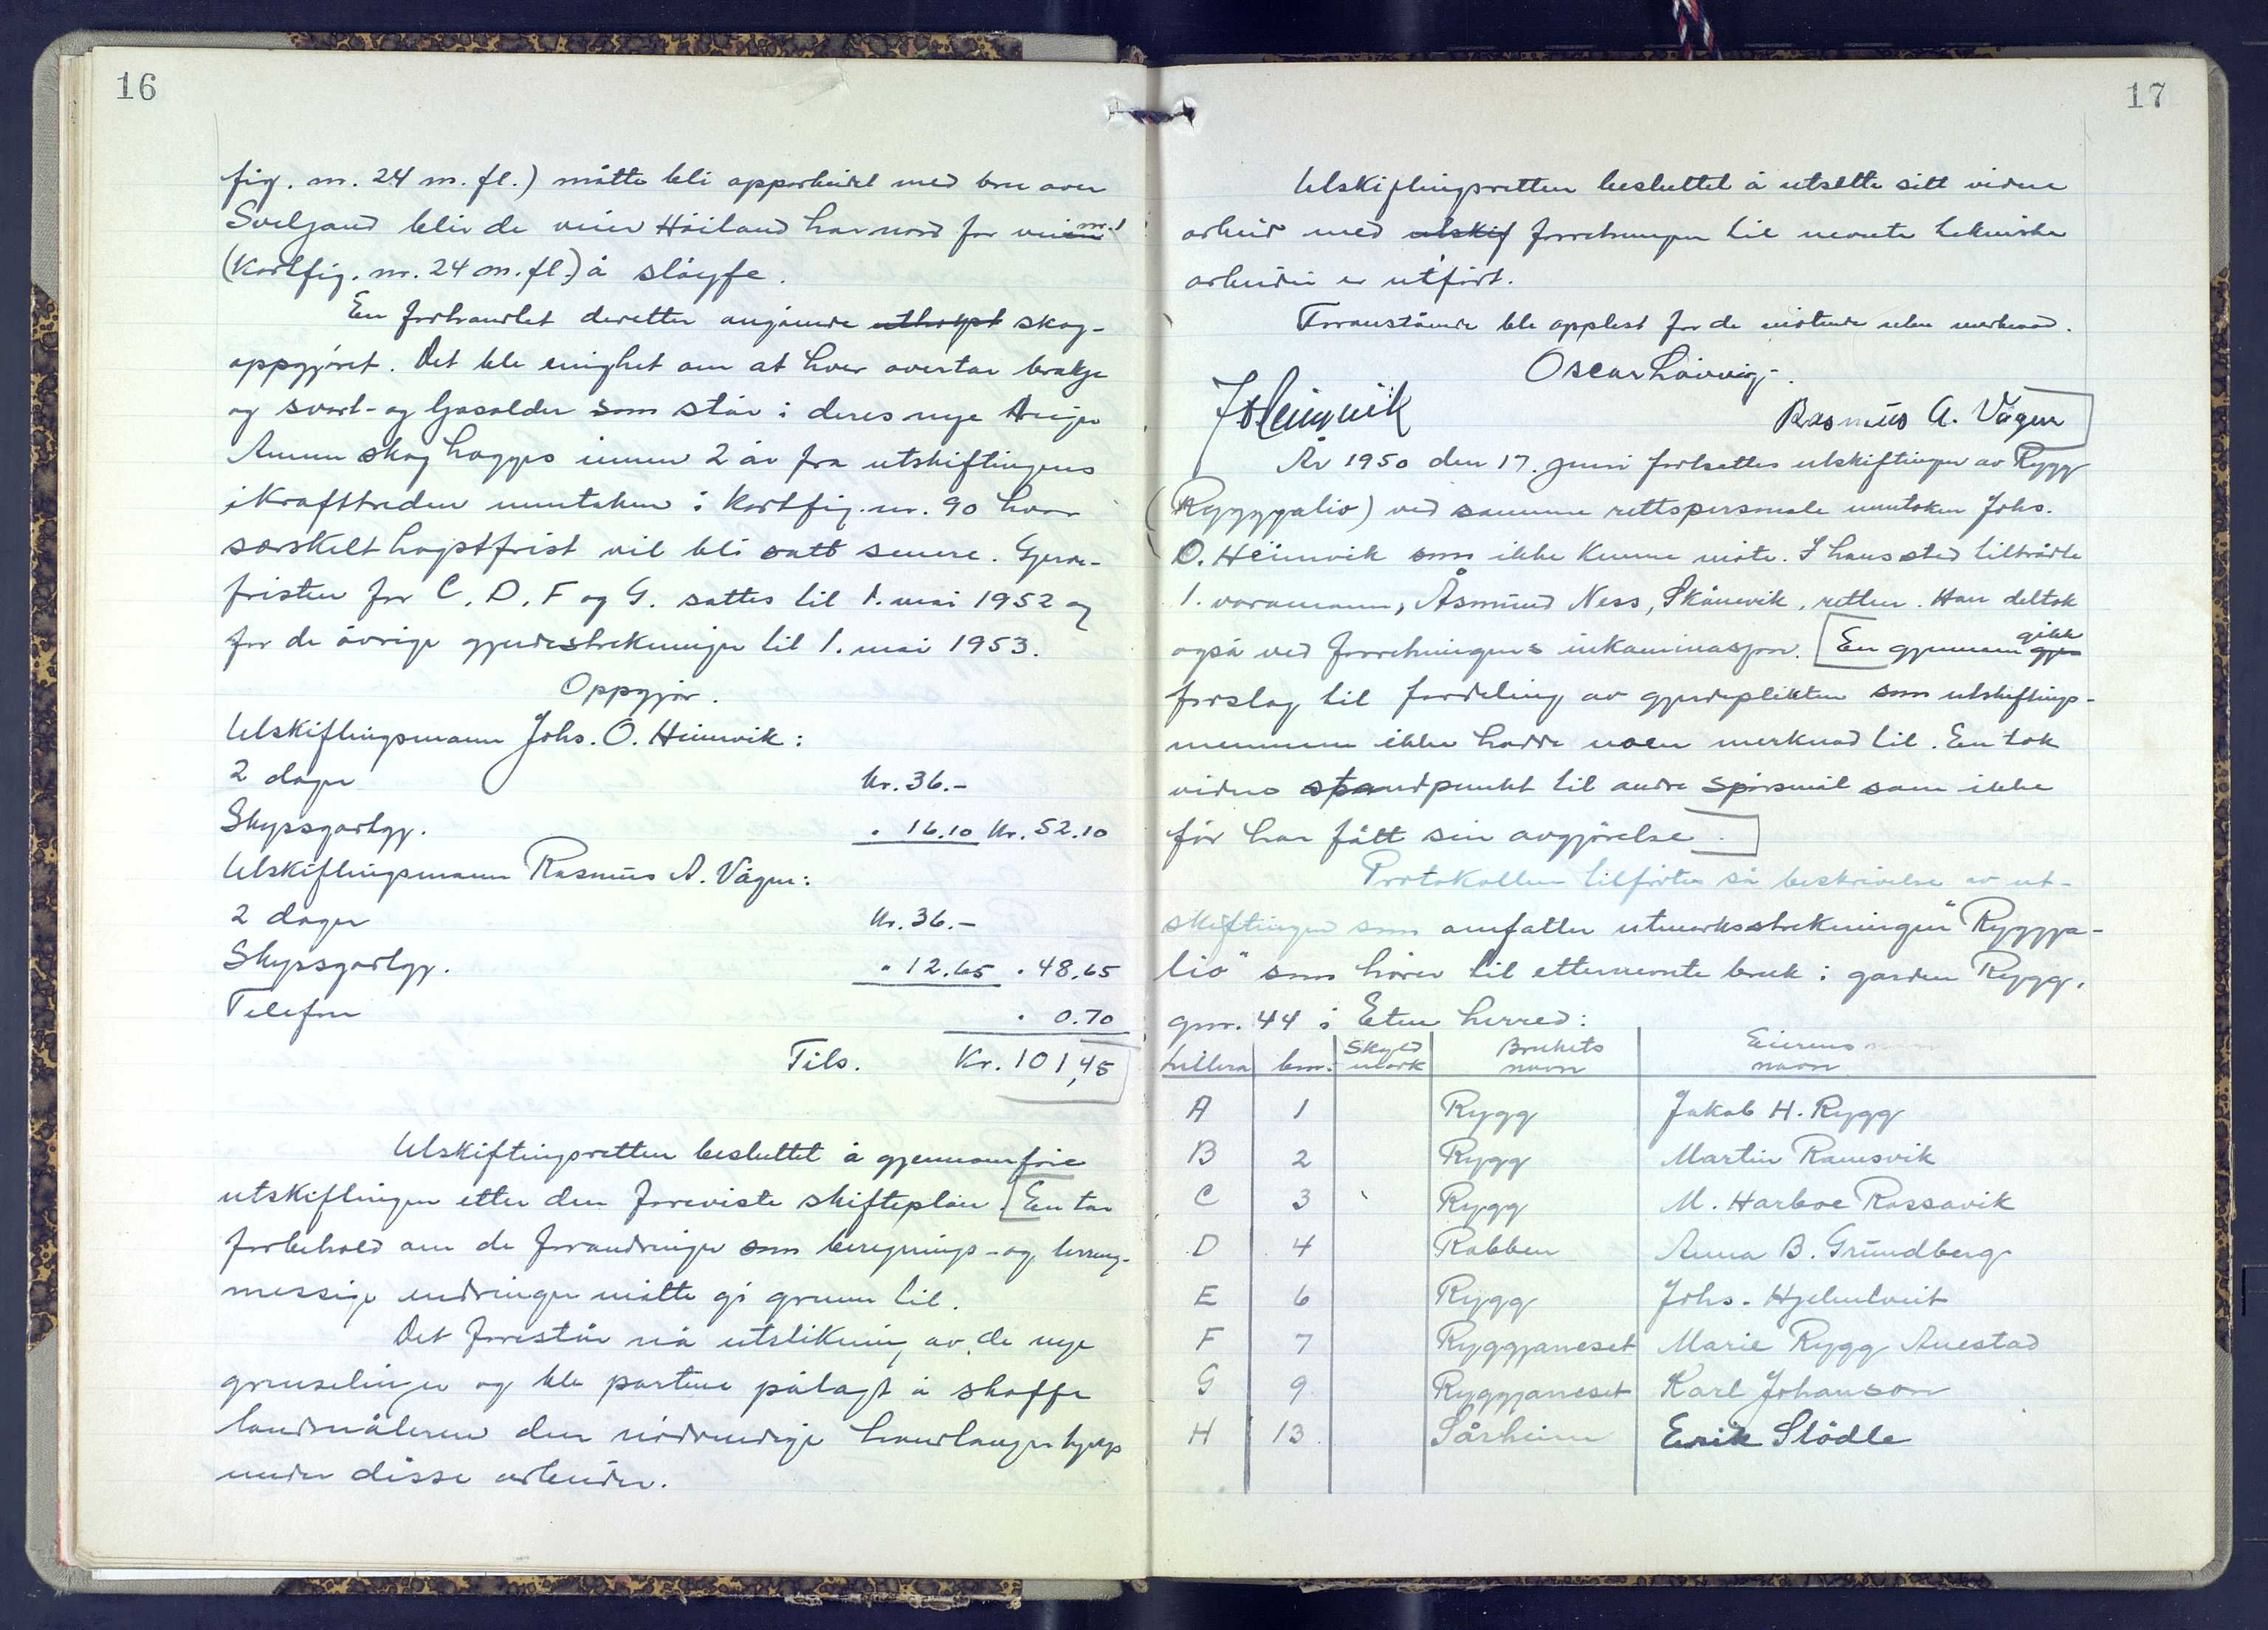 16
fig. nr. 24 m. fl.) måtte bli opparbeidet med bru over
SveljaND blir de veier Höiland har nord for veien nr.
(Kartfig. nr. 24 m. fl.) å slöyfe.
En forhandlet deretter angående uthogst skog-
oppgjöret. Det ble enighet om at hver overtar brakje
og svart- og låsolder som står i deres nye teiger
Annen skog hogges innen 2 år fra utskiftingens
ikrafttreden unntaken i kartfig. nr. 90 hvor
særskelt hogstfrist vil bli satt senere. Gjerde-
fristen for C, D, F og G. settes til 1. mai 1952 og
for de övrige gjerdestrekninger til 1. mai 1953.
Oppgjör.
Utskiftingsmann Johs. O. Heimvik:
2 dager Kr. 36.-
Skyssgodtgj. " 16.10 Kr. 52.10
Utskiftingsmann Rasmus A. Vågen:
2 dager Kr. 36.-
Skyssgodtgj. " 12.65 " 48.65
Telefon " 0.70
Tils. Kr. 101,45
Utskiftingsretten besluttet å gjennomföre
utskiftingen etter den foreviste skifteplan. [En tar
forbehold om de forandringer som beregnings- og terreng-
messige endringer måtte gi grunn til.
Det forestår nå utstikning av de nye
grenselinjer og ble partene pålagt å skaffe
landmåleren den nödvendige handlangerhjelp
under disse arbeider.
17
Utskiftingsretten besluttet å utsette sitt videre
arbeid med utskif forretningen til nevnte tekniske
arbeider er utfört.
Foranstående ble opplest for de mötende uten merknad.
Oscar Lövvig.
J O Heimvik Rasmus A. Vågen]
År 1950 den 17. juni fortsettes utskiftingen av Rygg
(Ryggjalio) ved samme rettspersonale unntaken Johs.
O. Heimvik som ikke kunne möte. I hans sted tilträdte
1. varamann, Åsmund Ness, Skånevik, retten. Han deltok
også ved forretningens inkaminasjon. [En gjennom gje gikk
forslag til fordeling av gjerdeplikten som utskiftings-
mennene ikke hadde noen merknad til. En tok
videre standpunkt til andre spörsmål som ikke
för har fått sin avgjörelse.]
Protokollen tilförtes så beskrivelse av ut-
skiftingen som omfatter utmarksstrekningen "Ryggja-
lio" som hörer til etternevnte bruk i garden Rygg,
gnr. 44 i Etne herred:
Littera bnr. Skyld mark Brukets navn Eierens navn
A 1 Rygg Jakob H. Rygg
B 2 Rygg Martin Ramsvik
C 3 Rygg M. Harboe Rossavik
D 4 Rabben Anna B. Grundberg
E 6 Rygg Johs. Hjelmtveit
F 7 Ryggjaneset Marie Rygg Anestad
G 9 Ryggjaneset Karl Johanson
H 13 Sårheim Erik Slödle